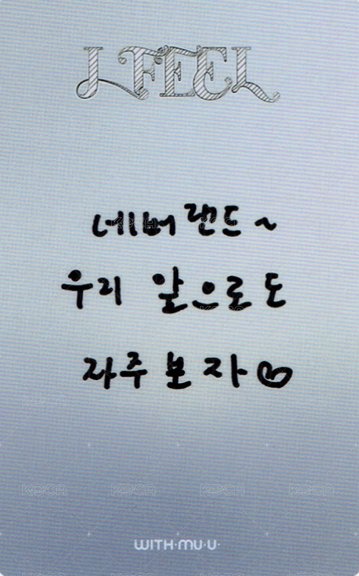 I FEEL
네버랜드~
우리 앞으로도
자주 보자♡
WITH·MU·U·